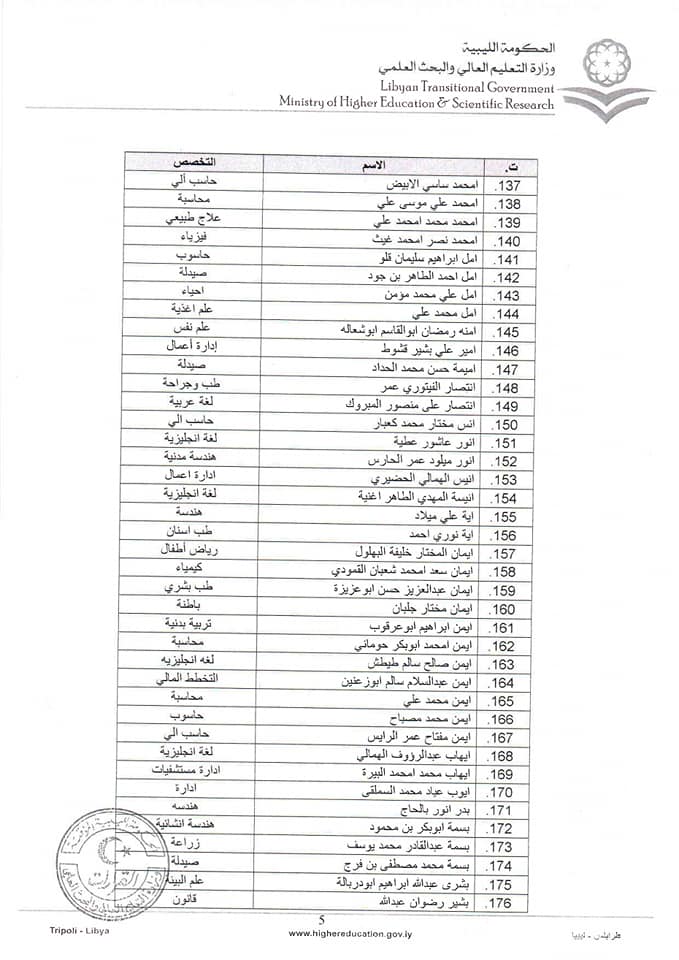 الحكومة الليبية
وزارة التعليم العالي والبحث العلمي
Libyan Transitional Government
Ministry of Higher Education & Scientific Research
ت. الاسم التخصص
137. امحمد ساسي الابيض حاسب ألي
138. امحمد علي موسى علي محاسبة
139. امحمد محمد امحمد علي علاج طبيعي
140. امحمد نصر امحمد غيث فيزياء
141. امل ابراهيم سليمان قلو حاسوب
142. امل احمد الطاهر بن جود صيدلة
143. امل علي محمد مؤمن احياء
144. امل محمد علي علم اغذية
145. امنه رمضان ابوالقاسم ابوشعاله علم نفس
146. امير علي بشير قشوط إدارة أعمال
147. اميمة حسن محمد الحداد صيدلة
148. انتصار الفيتوري عمر طب وجراحة
149. انتصار على منصور المبروك لغة عربية
150. انس مختار محمد كعبار حاسب الي
151. انور عاشور عطية لغة انجليزية
152. انور ميلود عمر الحارس هندسة مدنية
153. انيس الهمالي الحضيري ادارة اعمال
154. انيسة المهدي الطاهر اغنية لغة انجليزية
155. اية علي ميلاد هندسة
156. اية نوري احمد طب اسنان
157. ايمان المختار خليفة البهلول رياض أطفال
158. ايمان سعد امحمد شعبان القمودي كيمياء
159. ايمان عبدالعزيز حسن ابوعزيزة طب بشري
160. ايمان مختار جلبان باطنة
161. ايمن ابراهيم ابوعرقوب تربية بدنية
162. ايمن امحمد ابوبكر حوماني محاسبة
163. ايمن صالح سالم طيطش لغه انجليزيه
164. ايمن عبدالسلام سالم ابوزعنين التخطط المالي
165. ايمن محمد علي محاسبة
166. ايمن محمد مصباح حاسوب
167. ايمن مفتاح عمر الرايس حاسب الي
168. ايهاب عبدالرؤوف الهمالي لغة انجليزية
169. ايهاب محمد امحمد البيرة ادارة مستشفيات
170. ايوب عياد محمد السملقى ادارة
171. بدر انور بالحاج هندسه
172. بسمة ابوبكر بن محمود هندسة انشائية
173. بسمة عبدالقادر محمد يوسف زراعة
174. بسمة محمد مصطفى بن فرج صيدلة
175. بشرى عبدالله ابراهيم ابودربالة علم البيئة
176. بشير رضوان عبدالله قانون
5
Tripoli - Libya
www.highereducation.gov.ly
طرابلس - ليبيا